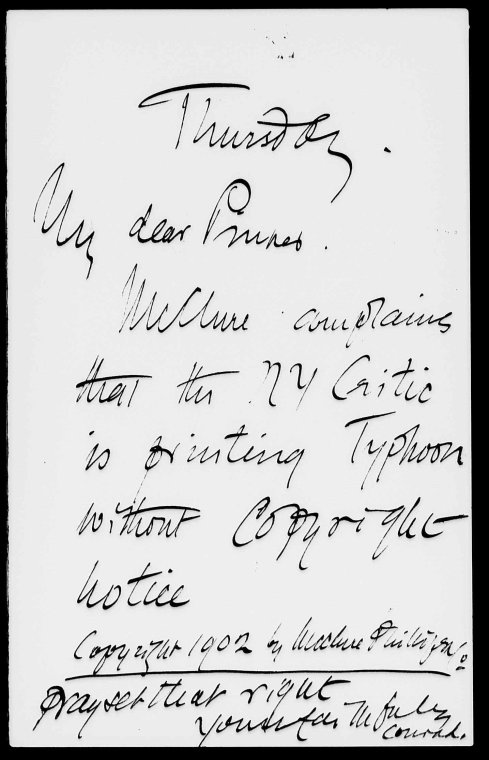 Thursday.
My dear Pinker.
McClure complains
that the NY Critic
is printing Typhoon
without Copyright
notice
Copyright 1902 by McClure Phillips & Co
pray set that right
Yours faithfully
Conrad.